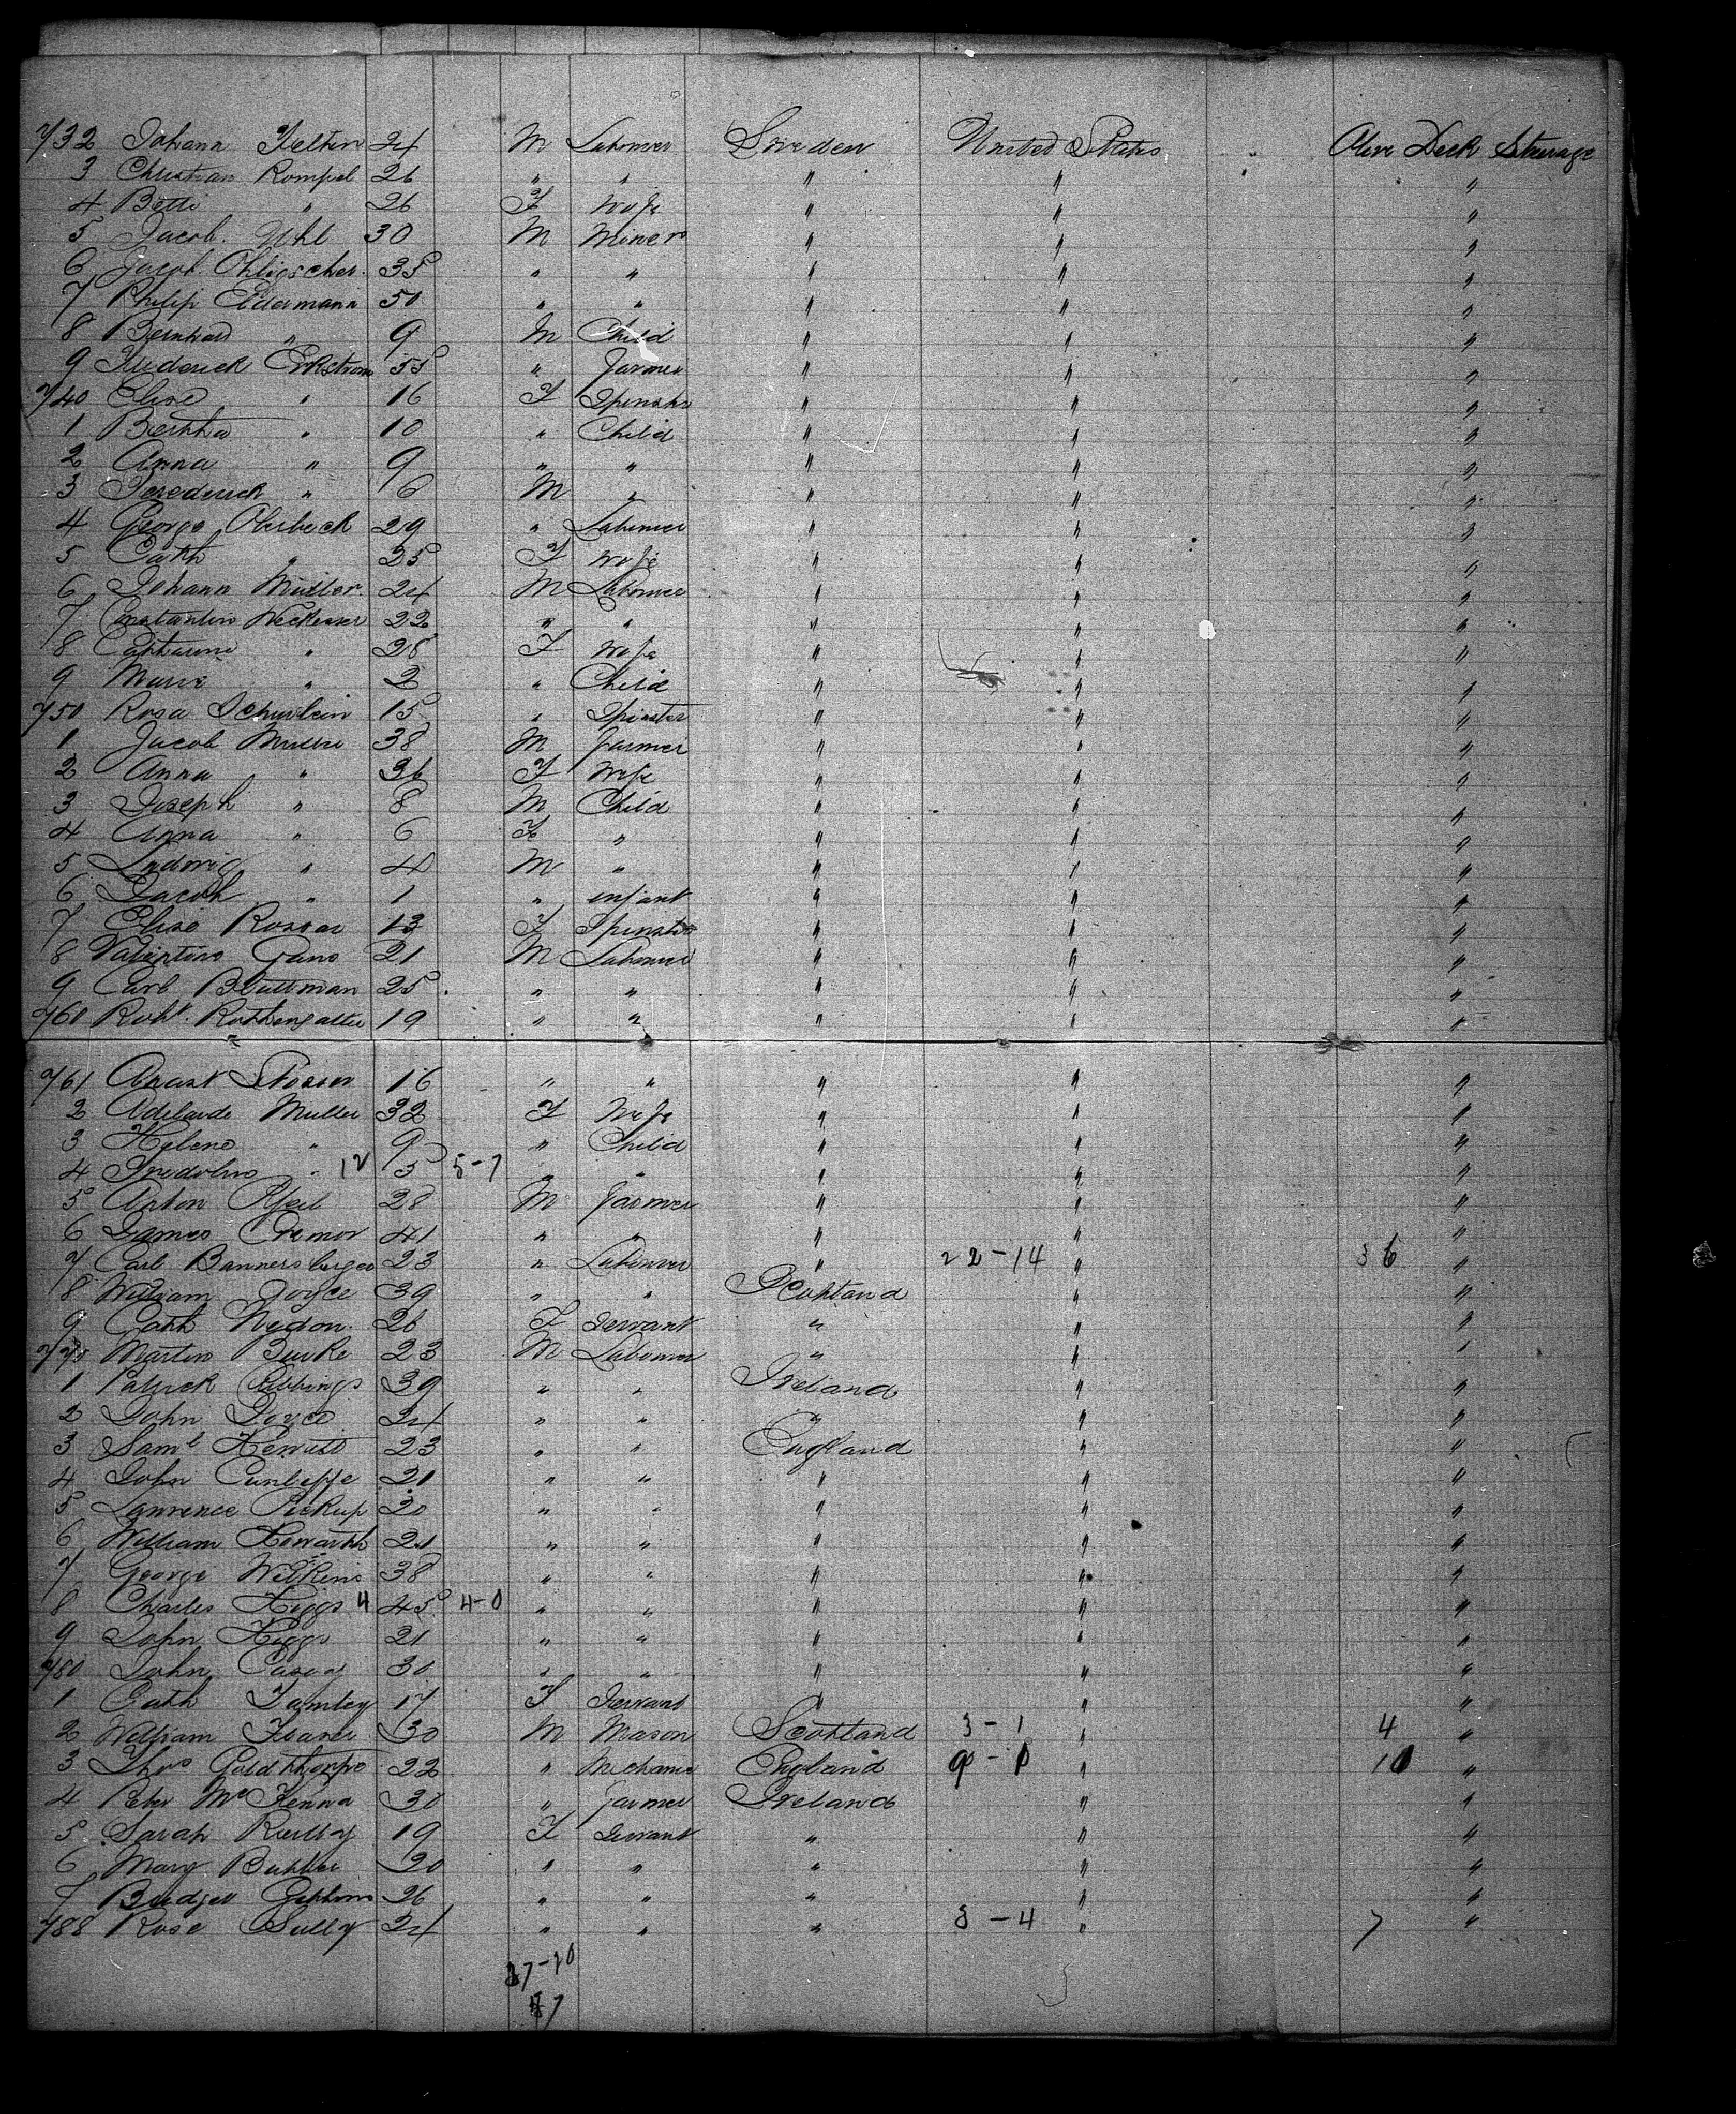 732 Johann Kelten 24 M Labourer Sweden United States Olive Deck Steerage
3 Christian Rompel 26 " " " " "
4 Bette " 26 F Wife " " "
5 Jacob. Uhl 30 M Miner " " "
6 Jacob. Ohligscher. 35 " " " " "
7 Philip Edermann 50 " " " " "
8 Bernhard " 9 M Child " " "
9 Frederick Erkstrom 55 " Farmer " " "
740 Elise " 16 F Spinster " " "
1 Bertha " 10 " Child " " "
2 Anna " 9 " " " " "
3 Frederick " 6 M " " " "
4 George Oberbeck 29 " Labourer " " "
5 Cath " 25 F Wife " " "
6 Johann Muller 24 M Labourer " " "
7 Constantin Weckesser 22 " " " " "
8 Catharine " 28 F Wife " " "
9 Marie " 2 " Child " " "
750 Rosa 15 " Spinster " " "
1 Jacob Muller 38 M Farmer " " "
2 Anna " 36 F Wife " " "
3 Joseph " 8 M Child " " "
4 Anna " 6 F " " " "
5 Ludwig " 4 M " " " "
6 Jacob " 1 " infant " " "
7 Elise Rossar 13 F Spinster " " "
8 Valentino Gans 21 M Labourer " " "
9 Carl Bluttman 25 " " " " "
760 Robt. Rothengatter 19 " " " " "
761 16 " " " " "
2 Adelaide Muller 32 F Wife " " "
3 Helene " 9 " Child " " "
4 Fredolino " 12 5 5-7 " " " " "
5 Anton 28 M Farmer " " "
6 James Cremor 41 " " " " "
7 Carl Bannersberger 23 " Labourer " 22-14 " 36 "
8 William Joyce 39 " " Scotland " "
9 Cath Nydon 26 F Servant " " "
770 Martin Burke 23 M Labourer " " "
1 Patrick Cubbings 39 " " Ireland " "
2 John Joyce 24 " " " " "
3 Saml Hewitt 23 " " England " "
4 John Cunliffe 21 " " " " "
5 Lawrence Pickup 20 " " " " "
6 William Howarth 21 " " " " "
7 George Wilkins 38 " " " " "
8 Charles Higgs 4 45 4-0 " " " " "
9 John Higgs 21 " " " " "
780 John Casey 30 " " " " "
1 Cath Tamley 17 F Servant " " "
2 William 30 M Mason Scotland 3-1 " 4 "
3 Thos Goldthorpe 22 " Mechanic England 9-1 " 10 "
4 Peter McKenna 30 " Farmer Ireland " "
5 Sarah Reilly 19 F Servant " " "
6 Mary Butler 20 " " " " "
7 Bridget Gibbons 26 " " " " "
788 Rose Sully 24 " " " 3-4 " 7 "
37-20